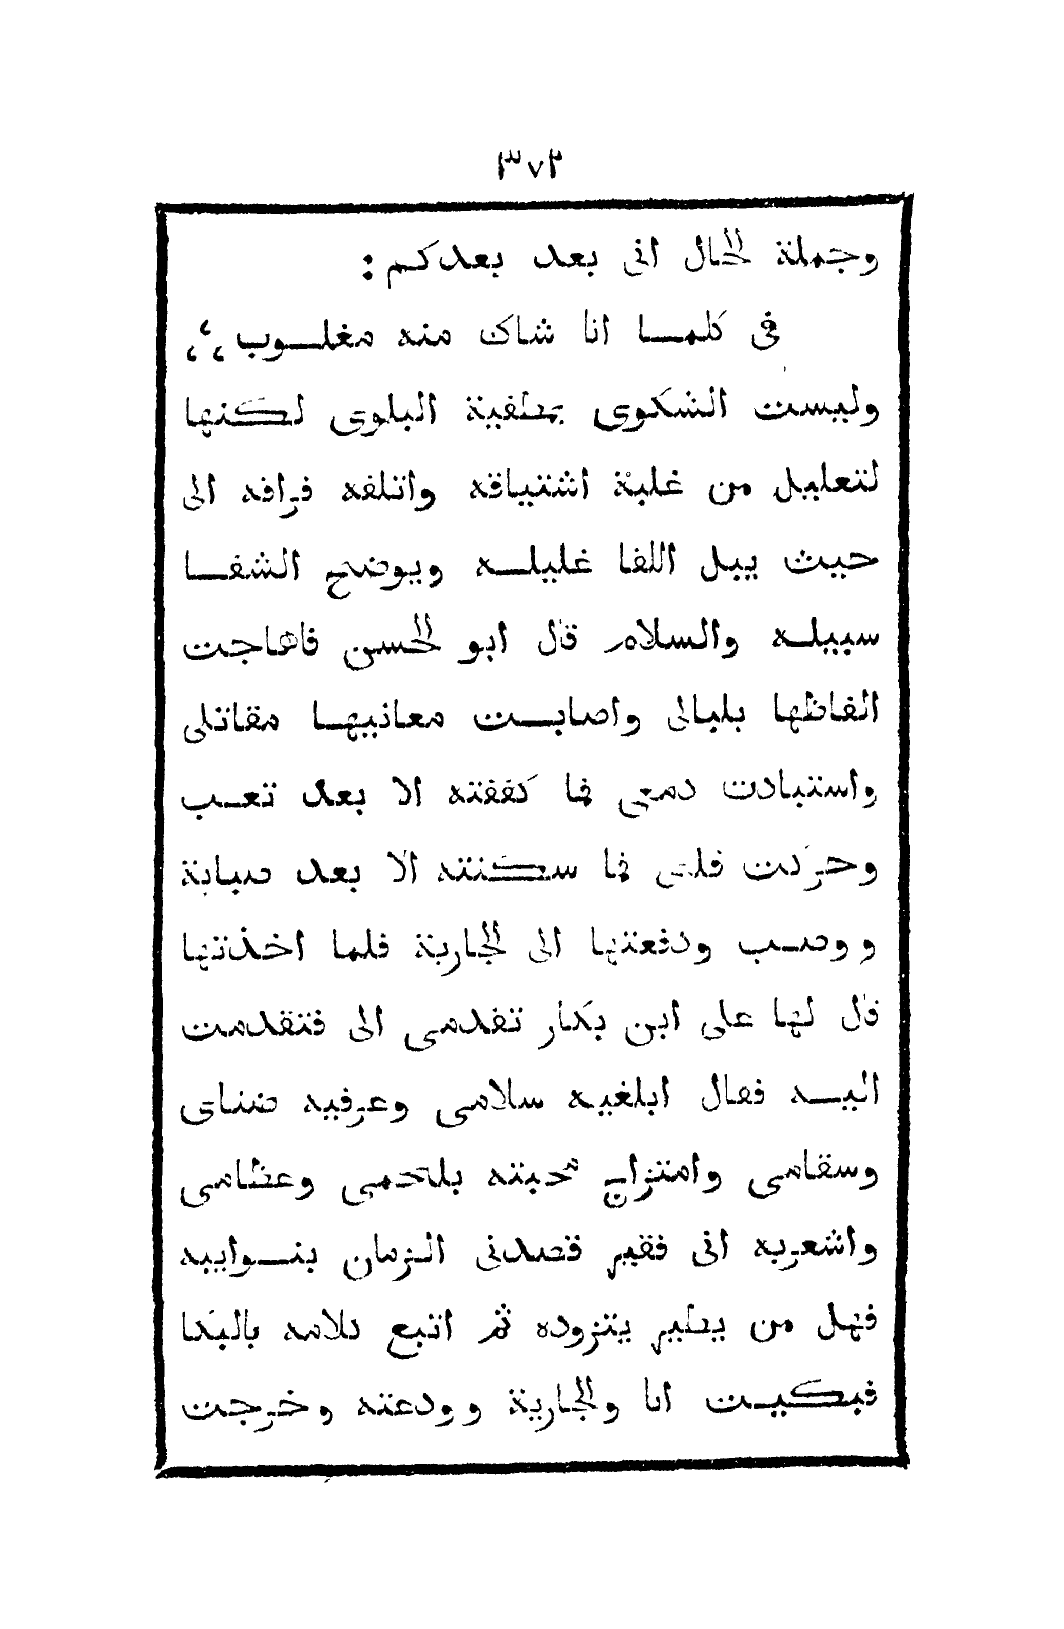 ٣٧٢
وجملة الحال انى بعد بعدكم :
فى كلما انا شاك منه مغلوب ،،،
وليست الشكوى بمطفية البلوى لكنها
لتعليل من غلبة اشتياقه واتلفه فراقه الى
حيث يبل اللقا غليله ويوضح الشفا
سبيله والسلام قال ابو الحسن فاهاجت
الفاظها بلبالى واصابت معانيها مقاتلى
واستبادت دمعى فما كففته الا بعد تعب
وحركت قلبى فما سكنته الا بعد صبابة
ووصب ودفعتها الى الجارية فلما اخذتها
قال لها على ابن بكار تقدمى الى فتقدمت
اليه فقال ابلغيه سلامى وعرفيه ضناى
وسقامى وامتزاج محبته بلحمى وعظامى
واشعريه انى فقير قصدنى الزمان بنوايبه
فهل من يطير يتزوده ثم اتبع كلامه بالبكا
فبكيت انا والجارية وودعته وخرجت